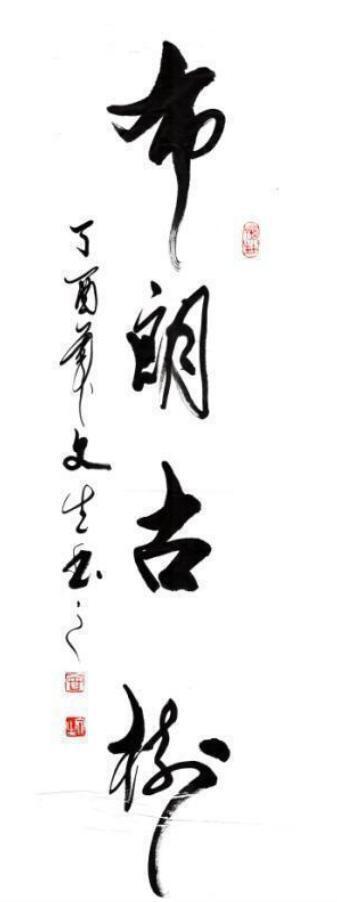 布朗古树
丁酉年文生书之